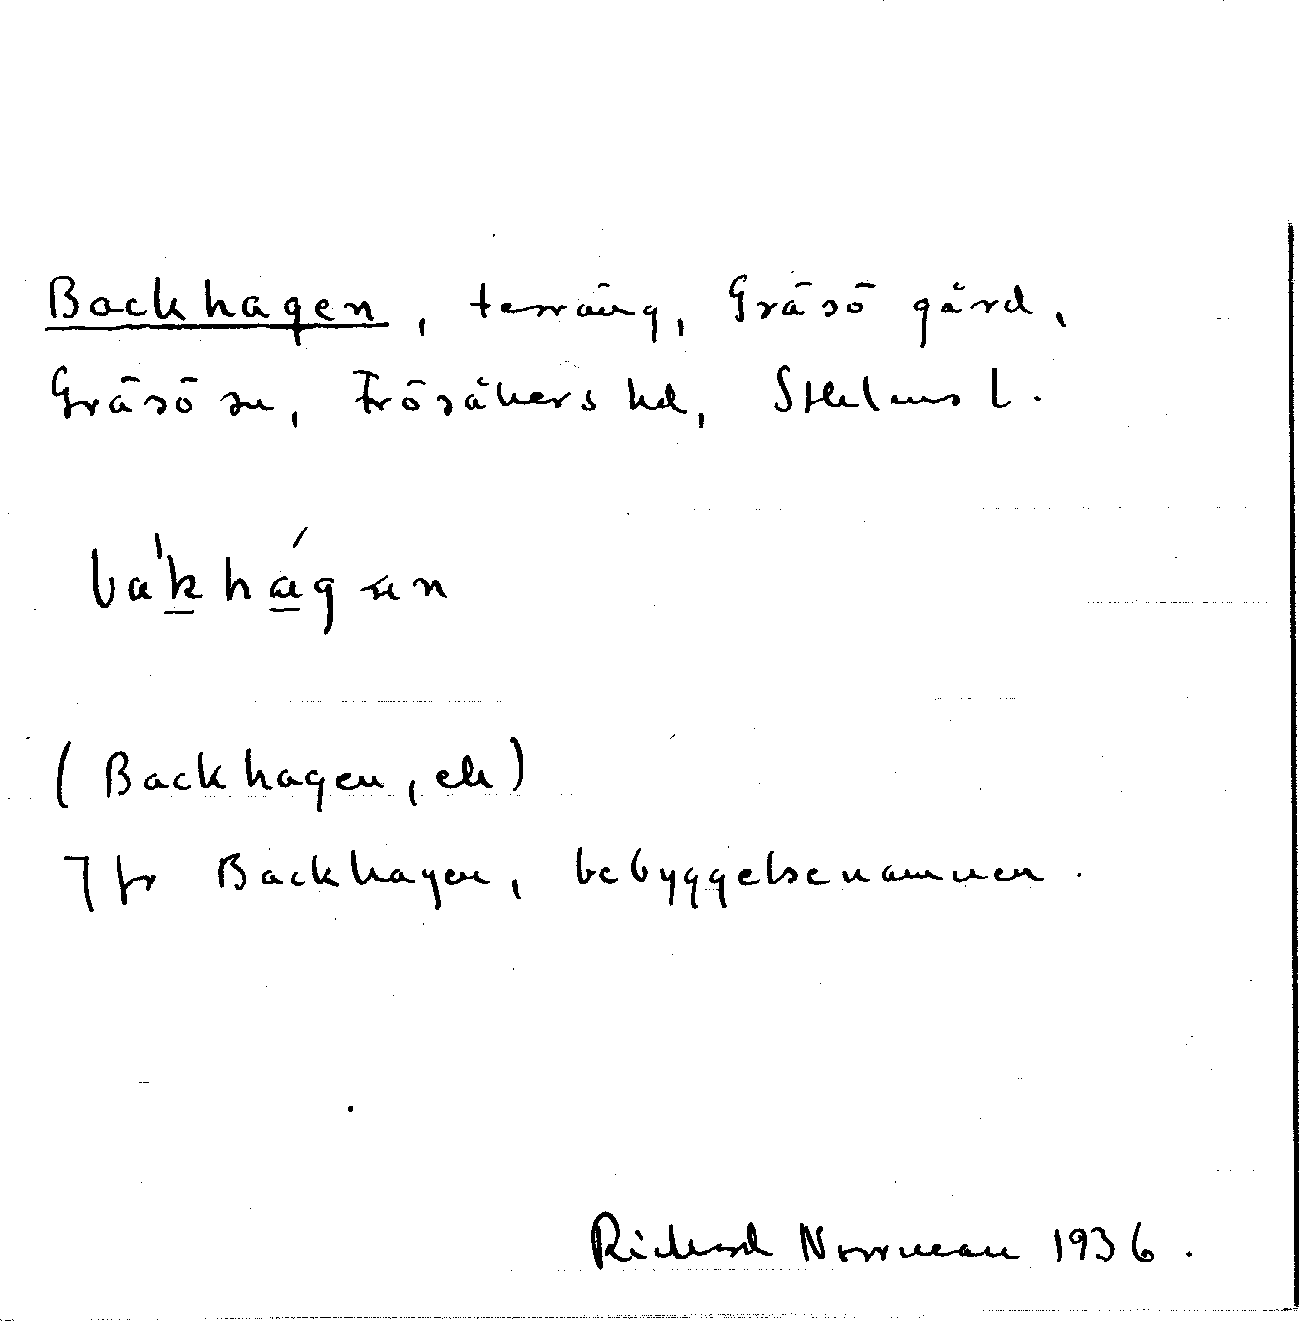 Backhagen, terräng, Gräsö gård,
Gräsö sn, Frösåkers hd, Sthlms l.
bákhágæn
(Backhagen, ek)
Jfr Backhagen, bebyggelsenamnen.
Richard Norrman 1936.